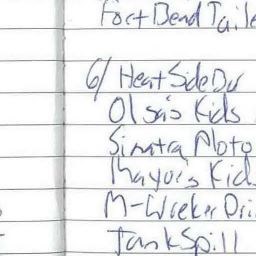 Fort Bend Taile
6/ Heat Side Dr
Olsa's Kids
Sinatra Moto
Mayor's Kids
M-Wreker Dri
Tank Spill